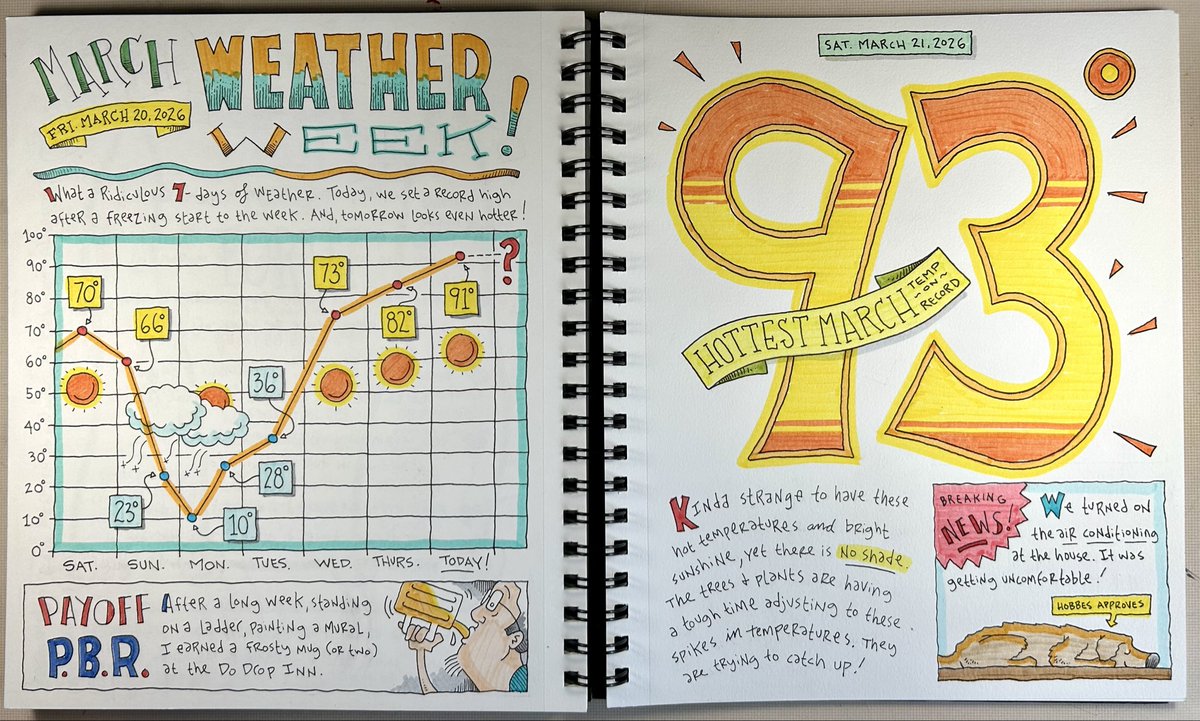 MARCH WEATHER WEEK!
FRI. MARCH 20, 2026
What a Ridiculous 7-days of weather. Today, we set a record high
after a freezing start to the week. And, tomorrow looks even hotter!
100°
90°
80°
70°
60°
50°
40°
30°
20°
10°
0°
70°
66°
23°
10°
28°
36°
73°
82°
91°
?
SAT. SUN. MON. TUES. WED. THURS. TODAY!
PAYOFF
P.B.R.
After a long week, standing
on a ladder, painting a mural,
I earned a frosty mug (or two)
at the Do Drop Inn.
SAT. MARCH 21, 2026
93
HOTTEST MARCH TEMP
~ON~
RECORD
Kinda strange to have these
hot temperatures and bright
sunshine, yet there is No shade.
The trees & plants are having
a tough time adjusting to these
spikes in temperatures. They
are trying to catch up!
BREAKING
NEWS!
We turned on
the air conditioning
at the house. It was
getting uncomfortable!
HOBBES APPROVES